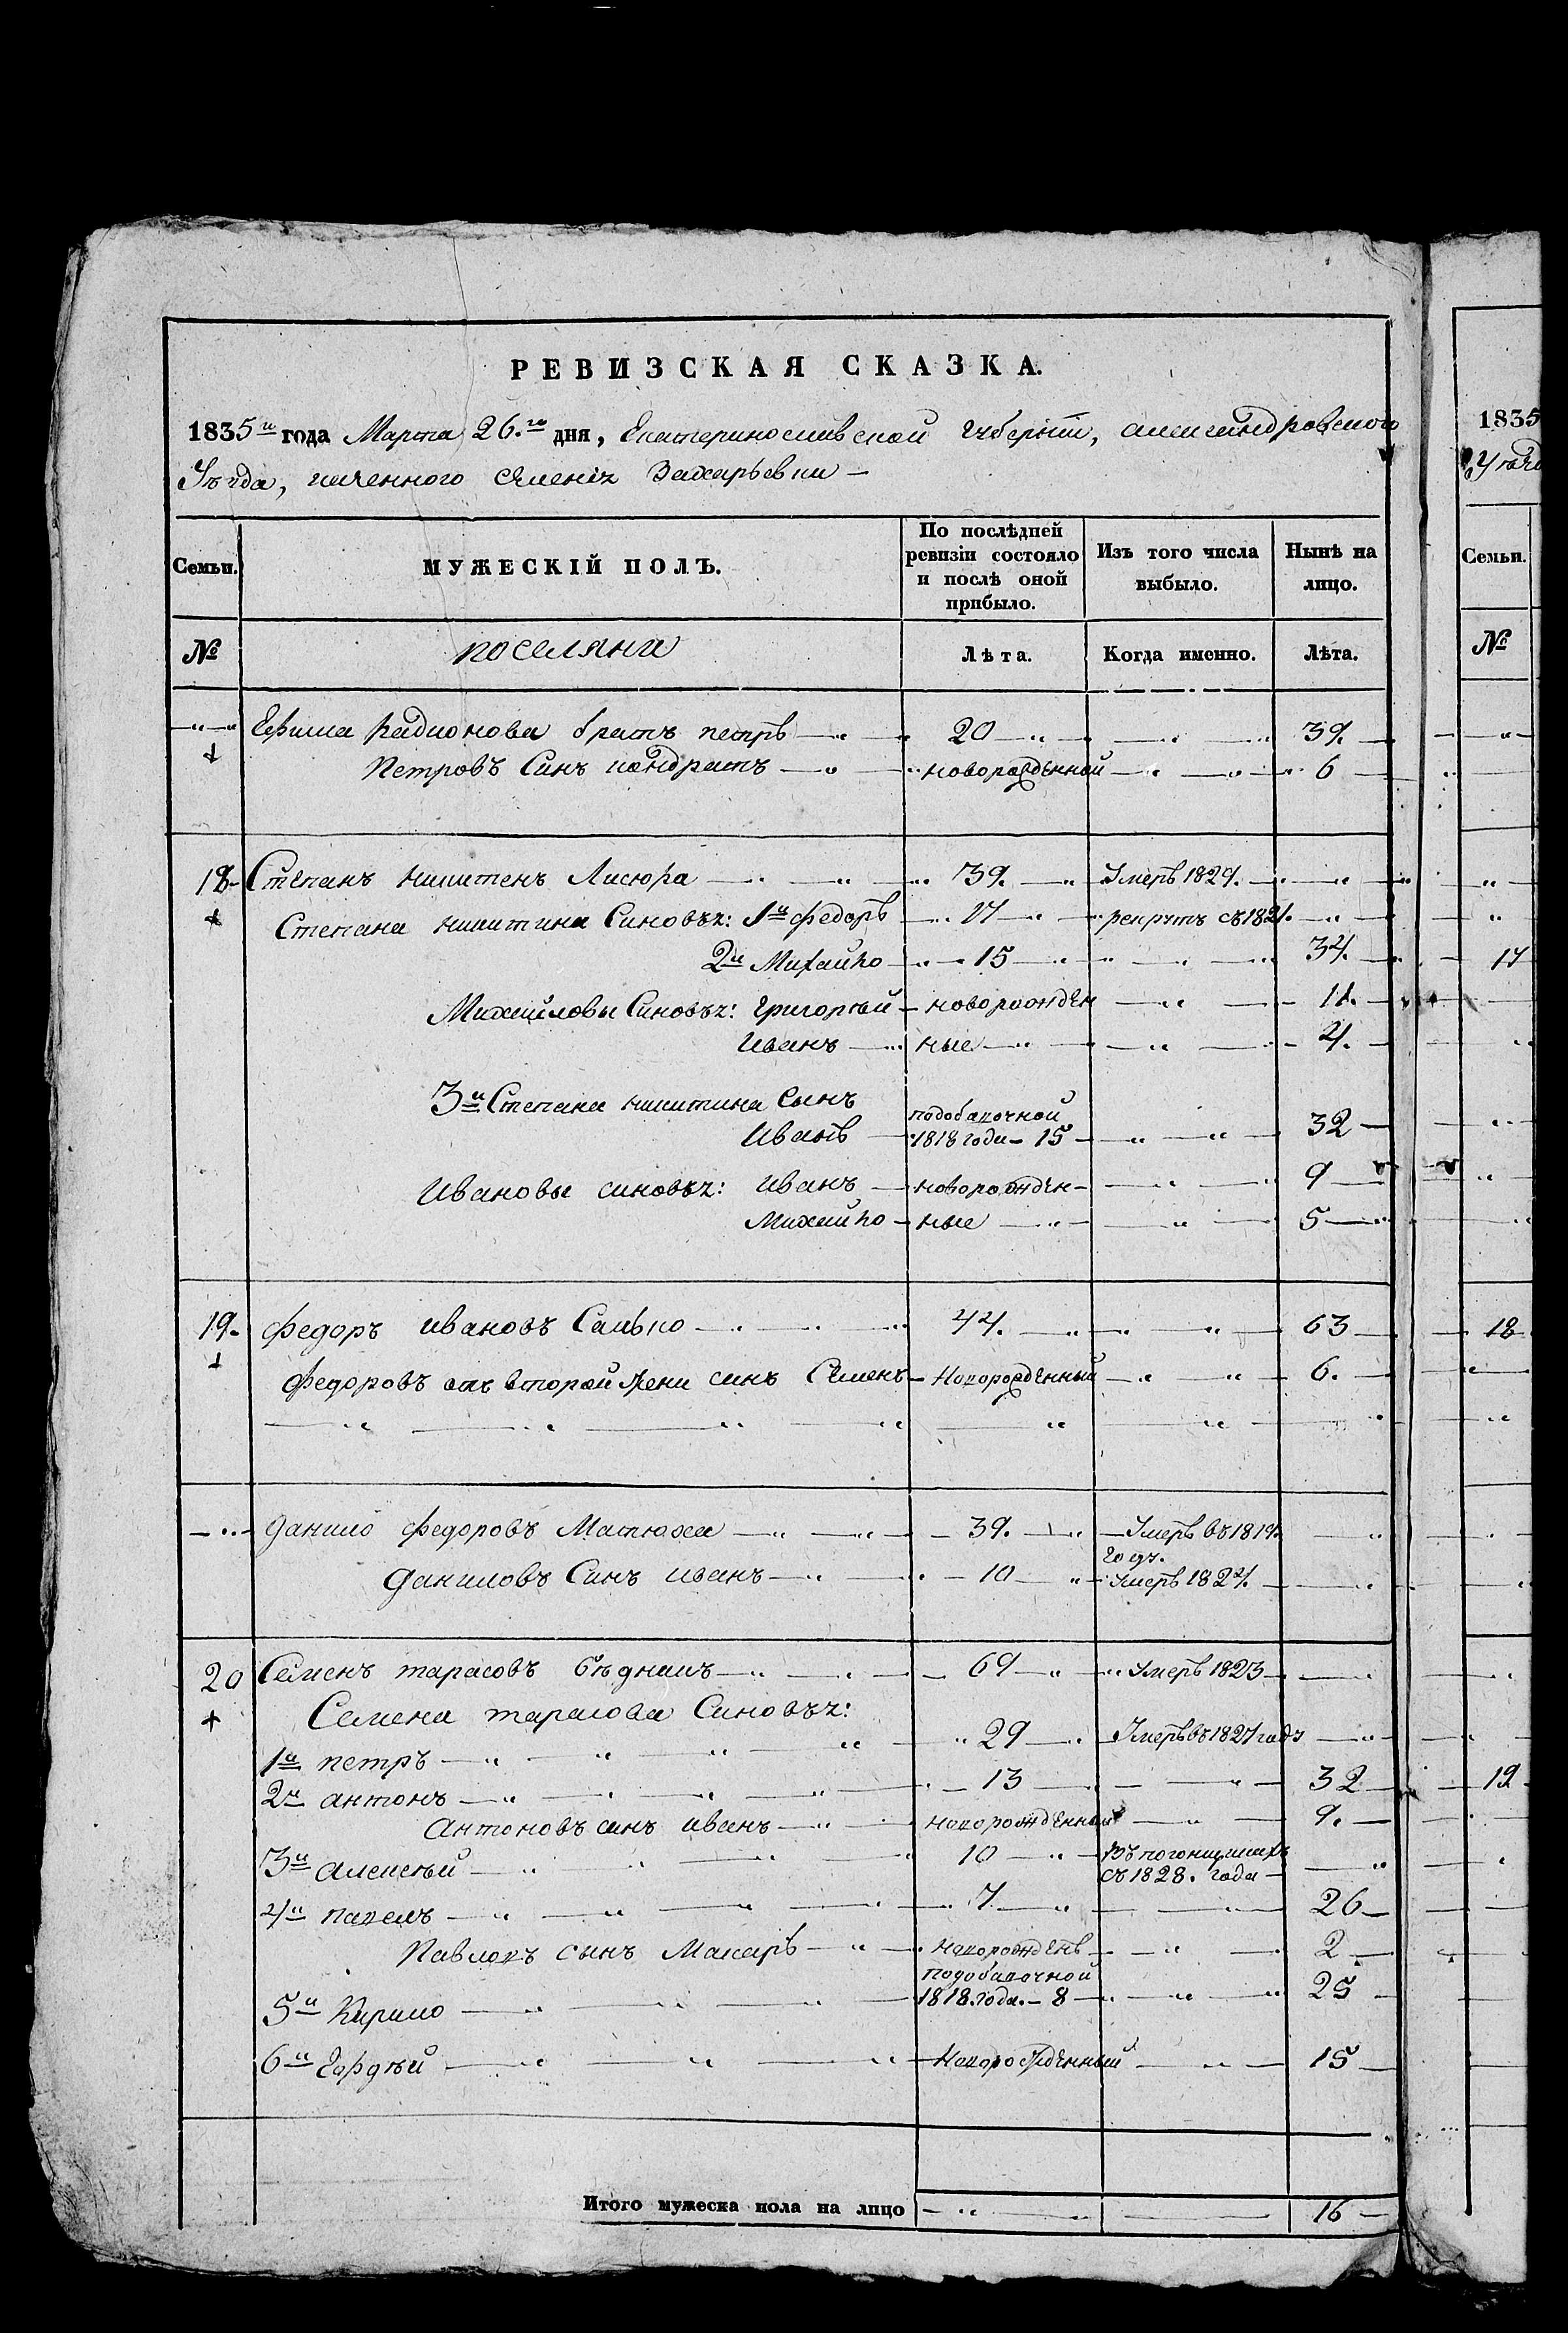 РЕВИЗСКАЯ СКАЗКА.
1835и года Марта 26.го дня, Екатеринославской губерніи, александровского
Уезда, казенного селенія Захарьевки —
Семьи. МУЖЕСКІЙ ПОЛЪ. По послѣдней ревизіи состояло и послѣ оной прибыло. Изъ того числа выбыло. Нынѣ на лицо.
№ поселяни Лѣта. Когда именно. Лѣта.
Ефима Радионова братъ петръ 20 39.
Петровъ Синъ кондратъ новорожденной 6
18 Степанъ никитенъ Лисюра 39. Умеръ 1829.
Степана никитина Синовья: 1й федоръ 17 рекрутъ съ 1821.
2й Михайло 15 34.
Михайловы Синовья: григорей новорожден 11.
иванъ ные 4.
3й Степана никитина Сынъ
иванъ подобавочной 1818 года – 15 32
ивановы синовья: иванъ новорожден– 9
Михайло ные 5
19. федоръ ивановъ Салько 44. 63
федоровъ отъ второй жени синъ Семенъ новорожденный 6.
данило федоровъ Матюха 39. Умеръ въ 1819. году.
даниловъ Синъ иванъ 10 умеръ 1824.
20 Семенъ тарасовъ беднакъ 69 Умеръ 1823
Семена тарасова Синовья:
1й петръ 29 Умеръ въ 1827 году
2й антонъ 13 32
Антоновъ синъ иванъ новорожденной 9.
3й алексей 10 въ погонщикахъ съ 1828. года
4й павелъ 7 26
Павловъ сынъ Макаръ новорожденъ 2
5й Кирило подобавочной 1818. года. – 8 25
6й Гордей новорожденный 15
Итого мужеска пола на лицо 16
1835
Семьи.
№
17
18
19